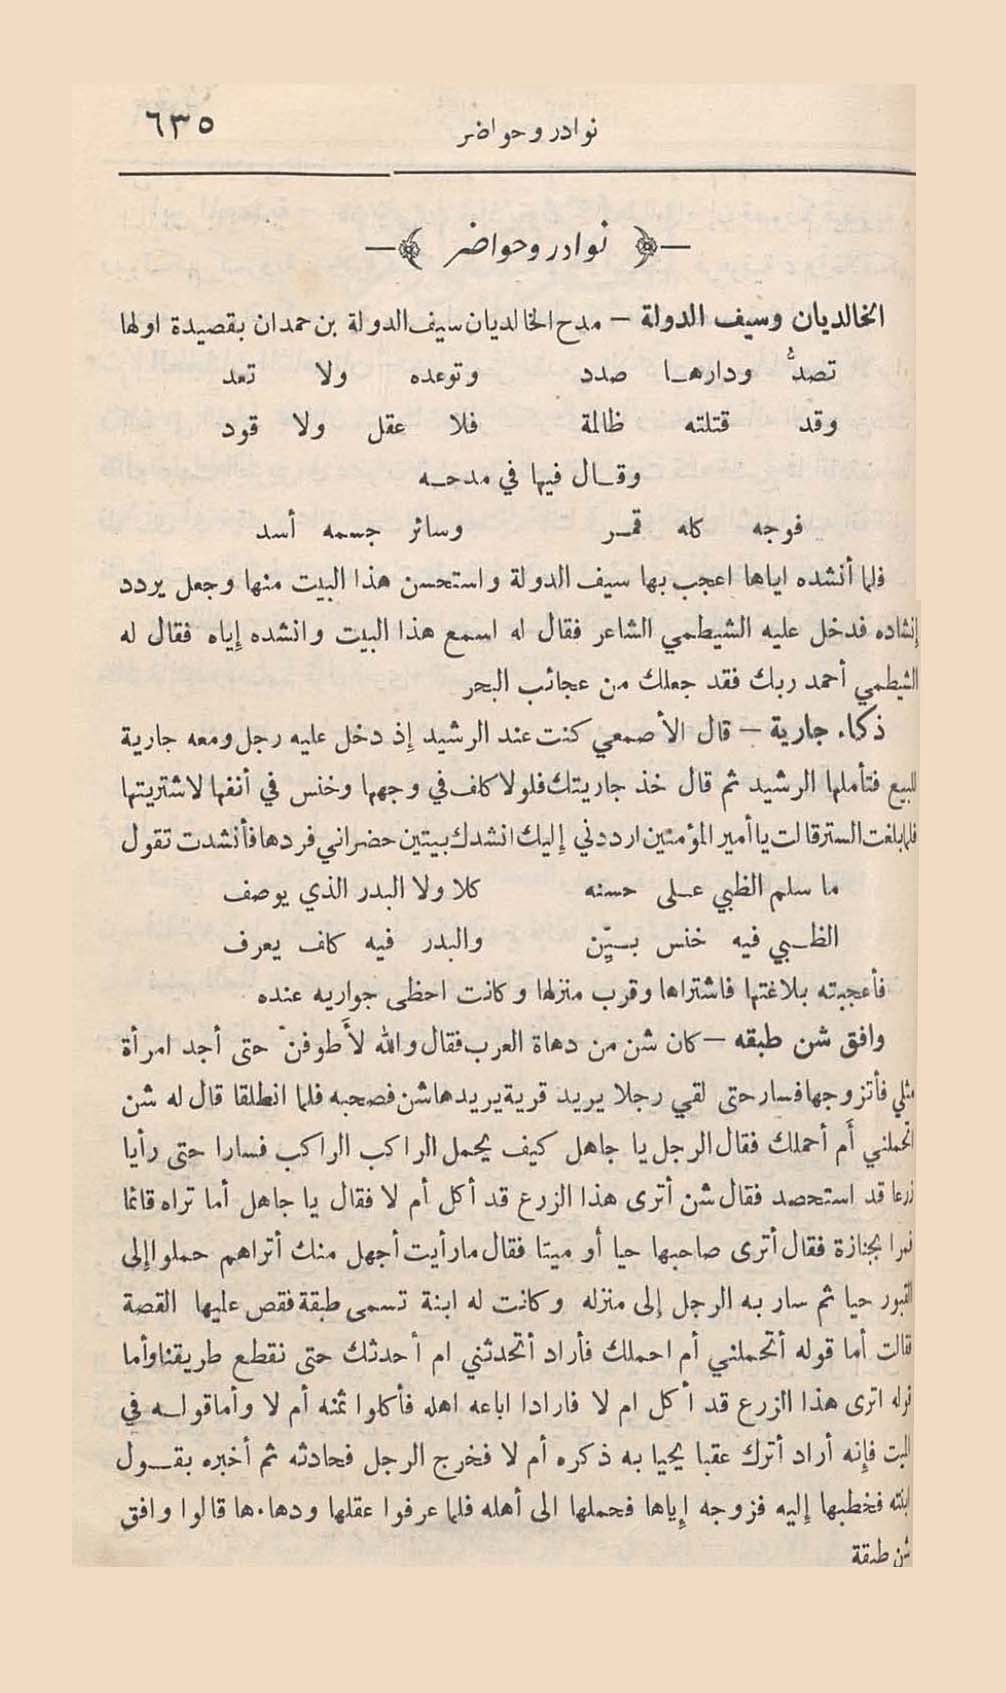 نوادر وحواضر ٦٣٥
﴿ نوادر وحواضر ﴾
الخالديان وسيف الدولة – مدح الخالديان سيف الدولة بن حمدان بقصيدة اولها
تصدُّ ودارهـا صدد وتوعده ولا تعد
وقد قتلته ظالمة فلا عقل ولا قود
وقـال فيها في مدحـه
فوجه كله قمـر وسائر جسمه أسد
فلما أنشده اياها اعجب بها سيف الدولة واستحسن هذا البيت منها وجعل يردد
إنشاده فدخل عليه الشيظمي الشاعر فقال له اسمع هذا البيت وانشده إياه فقال له
الشيظمي أحمد ربك فقد جعلك من عجائب البحر
ذكاء جارية – قال الأصمعي كنت عند الرشيد إذ دخل عليه رجل ومعه جارية
للبيع فتأملها الرشيد ثم قال خذ جاريتك فلولا كلف في وجهها وخنس في أنفها لاشتريتها
فلما بلغت الستر قالت يا أمير المؤمنين ارددني إليك انشدك بيتين حضراني فردها فأنشدت تقول
ما سلم الظبي عـلى حسنه كلا ولا البدر الذي يوصف
الظـبي فيه خنس بـيِّن والبدر فيه كلف يعرف
فأعجبته بلاغتها فاشتراها وقرب منزلها وكانت احظى جواريه عنده
وافق شن طبقه – كان شن من دهاة العرب فقال والله لأَطوفنّ حتى أجد امرأة
مثلي فأتزوجها فسار حتى لقي رجلا يريد قرية يريدها شن فصحبه فلما انطلقا قال له شن
اتحملني أم أحملك فقال الرجل يا جاهل كيف يحمل الراكب الراكب فسارا حتى رأيا
زرعا قد استحصد فقال شن أترى هذا الزرع قد أكل أم لا فقال يا جاهل أما تراه قائما
فمرا بجنازة فقال أترى صاحبها حيا أو ميتا فقال ما رأيت أجهل منك أتراهم حملوا إلى
القبور حيا ثم سار به الرجل إلى منزله وكانت له ابنة تسمى طبقة فقص عليها القصة
فقالت أما قوله أتحملني أم احملك فأراد أتحدثني ام أحدثك حتى نقطع طريقنا وأما
قوله اترى هذا الزرع قد أكل ام لا فارادا اباعه اهله فأكلوا ثمنه أم لا وأما قولـه في
الميت فإنه أراد أترك عقبا يحيا به ذكره أم لا فخرج الرجل فحادثه ثم أخبره بقـول
ابنته فخطبها إليه فزوجه إياها فحملها الى أهله فلما عرفوا عقلها ودهاءها قالوا وافق
شن طبقة